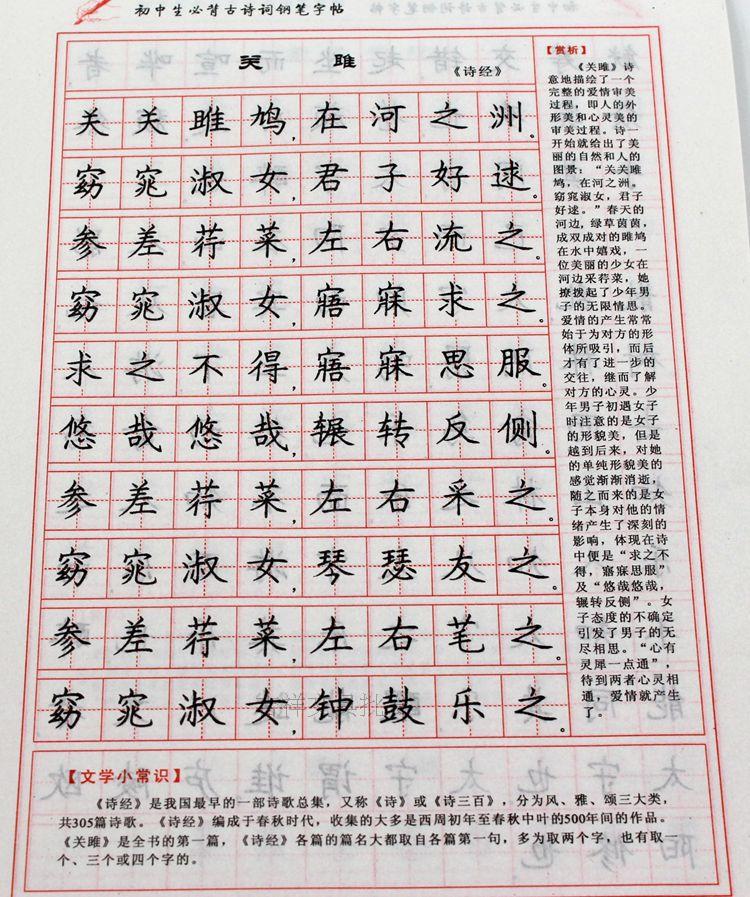 初中生必背古诗词钢笔字帖
关 雎
《诗经》
关关雎鸠,在河之洲。
窈窕淑女,君子好逑。
参差荇菜,左右流之。
窈窕淑女,寤寐求之。
求之不得,寤寐思服。
悠哉悠哉,辗转反侧。
参差荇菜,左右采之。
窈窕淑女,琴瑟友之。
参差荇菜,左右芼之。
窈窕淑女,钟鼓乐之。
【赏析】
《关雎》诗
意地描绘了一个
完整的爱情审美
过程，即人的外
形美和心灵美的
审美过程。诗一
开始就给出了美
丽的自然和人的
图景：“关关雎
鸠，在河之洲。
窈窕淑女，君子
好逑。”春天的
河边，绿草茵茵，
成双成对的雎鸠
在水中嬉戏，一
位美丽的少女在
河边采荇菜，她
撩拨起了少年男
子的无限情思。
爱情的产生常常
始于为对方的形
体所吸引，而后
才有了进一步的
交往，继而了解
对方的心灵。少
年男子初遇女子
时注意的是女子
的形貌美，但是
越到后来，对她
的单纯形貌美的
感觉渐渐消逝，
随之而来的是女
子本身对他的情
绪产生了深刻的
影响，体现在诗
中便是“求之不
得，寤寐思服”
及“悠哉悠哉，
辗转反侧”。女
子态度的不确定
引发了男子的无
尽相思。“心有
灵犀一点通”，
待到两者心灵相
通，爱情就产生
了。
【文学小常识】
《诗经》是我国最早的一部诗歌总集，又称《诗》或《诗三百》，分为风、雅、颂三大类，
共305篇诗歌。《诗经》编成于春秋时代，收集的大多是西周初年至春秋中叶的500年间的作品。
《关雎》是全书的第一篇，《诗经》各篇的篇名大都取自各篇第一句，多为取两个字，也有取一
个、三个或四个字的。